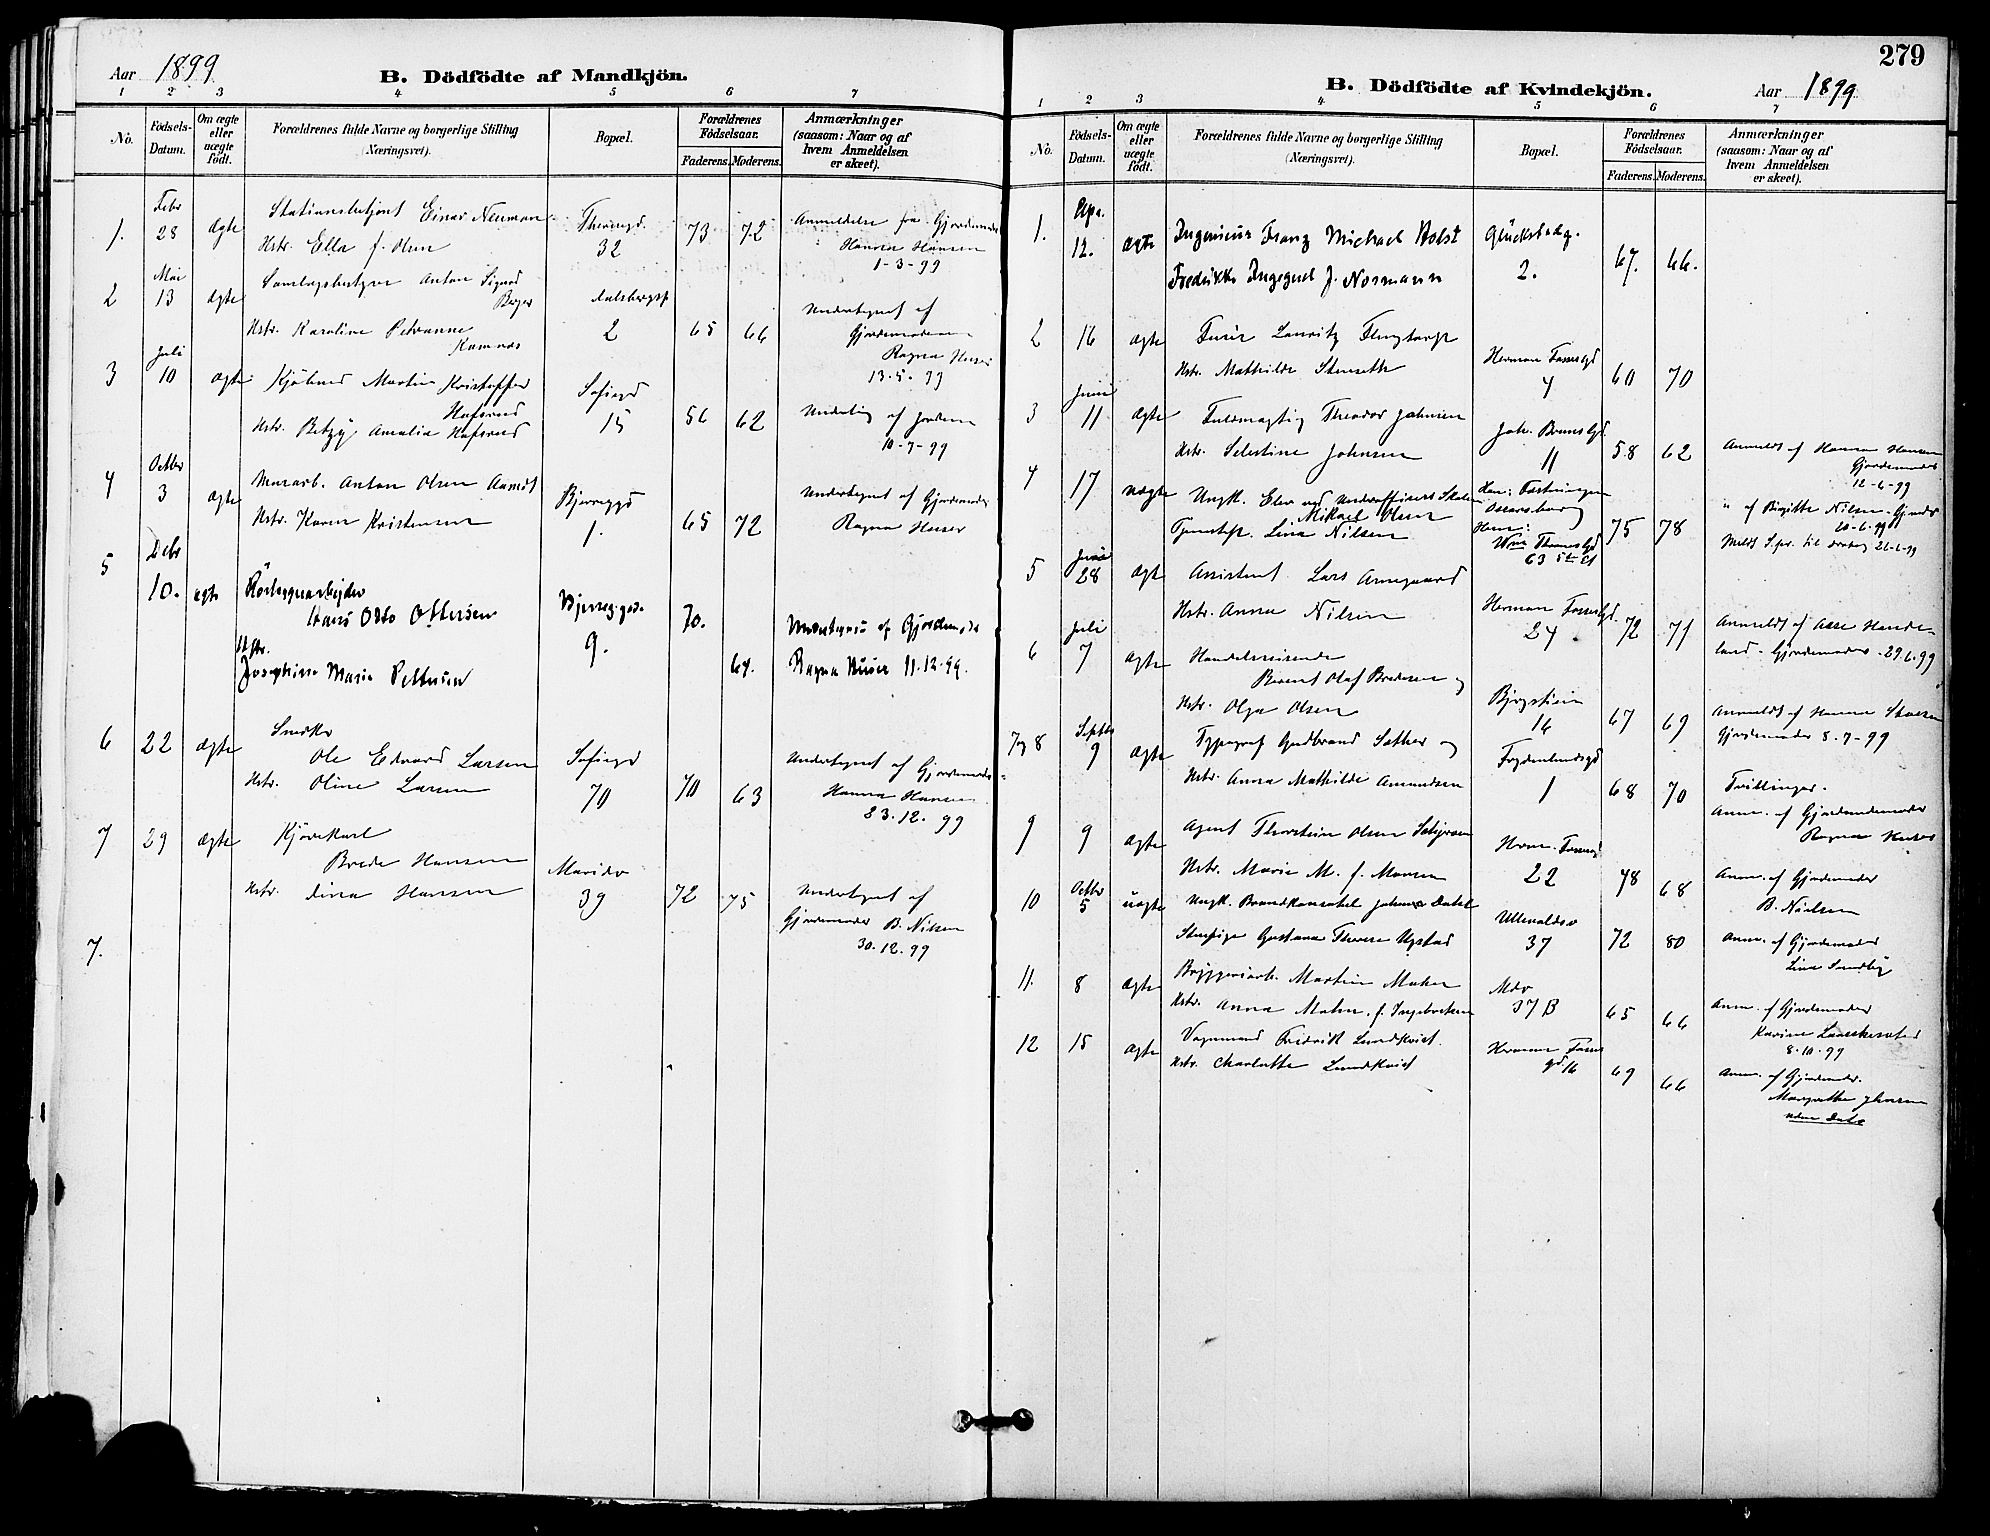 Aar 1899
B. Dödfödte af Mandkjön.
1 2 3 4 5 6 7
No.
Födsels-Datum.
Om ægte eller uægte födt.
Forældrenes fulde Navne og borgerlige Stilling (Næringsvei).
Bopæl.
Forældrenes Födselsaar.
Faderens. Moderens.
Anmærkninger (saasom: Naar og af hvem Anmeldelsen er skeet).
Febr
1. 28 ægte Stationsbetjent Einar Neuman
Hstr. Ella f. Olsen
32 73 72
Anmeldelse fra Gjordemoder
Hanna Hansen
1-3-99
Mai
2 13 ægte Anton Sigurd
Hstr. Karoline Petranne
2 65 66
Undertegnet af
Gjordemoderen
Ragna Huser
13.5.99
Juli
3 10 ægte Kjöbmd Martin Kristoffer
Hafsrud
Hstr. Betzy Amalia Hafsrud
Sofiegd
15 56 62
af Jordem
10-7-99
Octbr
4 3 ægte Murarb. Anton Olsen
Hstr. Karen Kristensen
Bjerregd
1. 65 72
Undertegnet af Gjordemoder
Ragna Huser
Debr
5 10. ægte Rörlæggerarbejder
Hans Otto Ottersen
Hstr.
Josephine Marie Pettersen
Bjerreg.gade
9. 70. 64.
Undertegnet af Gjordemoder
Ragna Huser 11.12.99.
6 22 ægte Snedker
Ole Edvard Larsen
Hstr. Oline Larsen
Sofiegd
70 70 63
Undertegnet af Gjordemoder
Hanna Hansen
23.12.99
7 29 ægte Kjörekarl
Brede Hansen
Hstr. Lina Hansen
Maridv
39 72 75
Undertegnet af
Gjordemoder B. Nilsen
30.12.99
7.
279
B. Dödfödte af Kvindekjön.
Aar 1899
1 2 3 4 5 6 7
No.
Födsels-Datum.
Om ægte eller uægte födt.
Forældrenes fulde Navne og borgerlige Stilling (Næringsvei).
Bopæl.
Forældrenes Födselsaar.
Faderens. Moderens.
Anmærkninger (saasom: Naar og af hvem Anmeldelsen er skeet).
Apr.
1. 12. ægte Ingenieur Franz Michael Holst
Fredrikke Ingegerd f. Normann
2. 67. 66.
2 16 ægte Furér Lauritz
Hstr. Mathilde Stenseth
Herman Fossgd
4 60 70
Juni
3 11 ægte Fuldmægtig Theodor Johnsen
Hstr. Selestine Johnsen
Joh. Brunsgd.
11 58 62
Anmeldt af Hanna Hansen
Gjordemoder
12-6-99
4 17 uægte Ungk. Elev ved Underofficers Skolen
Mikael Olsen
Tjenestepe. Lina Nilsen
Han: Fæstningen
Oscarsborg
Hun:
Wm Thranesgd
63 5te Et
75 78
" af Birgitte Nilsen - Gjordem
20-6-99
Meldt S.pr. til Drøbag 26-6-99
Juni
5 28 ægte Assistent Lars Arnegaard
Hstr. Anna Nilsen
Herman Fossgd.
24 72 71
Anmeldt af Asse Hande-
land - Gjordemoder - 29.6.99
Juli
6 7 ægte Handelsreisende
Bernt Olaf Bredesen og
Hstr. Olga Olsen
Bjergstien
16 67 69
Anmeldt af Hanna
Gjordemoder 8-7-99
Septbr
7 og 8 9 ægte Typograf Gudbrand Sæther og
Hstr. Anna Mathilde Amundsen
Frydenlundsgd
1 68 70
Tvillinger.
Anm. af Gjordemoder
Ragna Huser
9 9 ægte Agent Thorstein Olsen
Hstr. Marie M. f. Monsen
Herm. Fossgd
22 78 68
Anm. af Gjordemoder
B. Nielsen
Octbr
10 5 uægte Ungk. Brandkonstabel Johan Dahl
Gustava Therese Ugstad
Ullevaldsv
37 72 80
Anm. af Gjordemoder
Lina Sundby
11. 8 ægte Bryggeriarb. Martin Mohn
Hstr. Anna Mohn f. Ingebretsen
Mdv
37 B 65 66
Anm. af Gjordemoder
Karine
8.10.99
12 15 ægte Vognmand Fredrik Lundkvist
Hstr. Charlotte Lundkvist
Herman Foss
gd 16 69 66
Anm. af Gjordemoder.
Margrethe
uden Dato